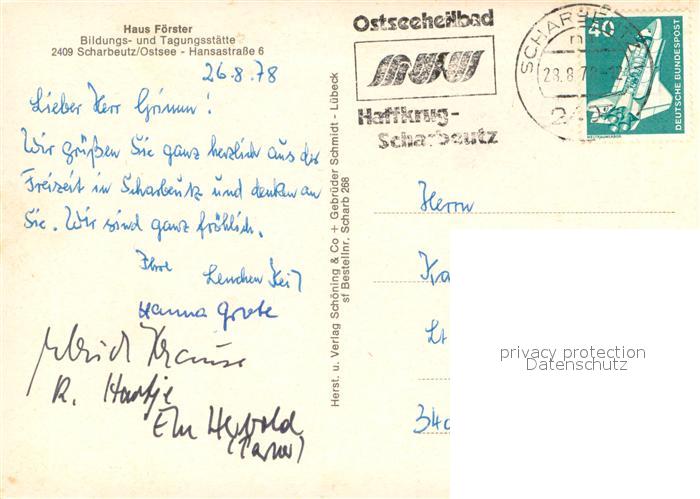 Haus Förster
Bildungs- und Tagungsstätte
2409 Scharbeutz/Ostsee - Hansastraße 6
26.8.78
Lieber Herr Grimm!
Wir grüßen Sie ganz herzlich aus der
Freizeit in Scharbeutz und denken an
Sie. Wir sind ganz fröhlich.
Ihre
Lenchen Keil
Hanna Grote
Ulrich Krause
R. Hartje
Herst. u. Verlag Schöning & Co + Gebrüder Schmidt - Lübeck
sf Bestellnr. Scharb 268
Ostseeheilbad
Haffkrug-
Scharbeutz
SCHARBEUTZ
28.8.78
40
DEUTSCHE BUNDESPOST
WELTRAUMLABOR
Herrn
privacy protection
Datenschutz